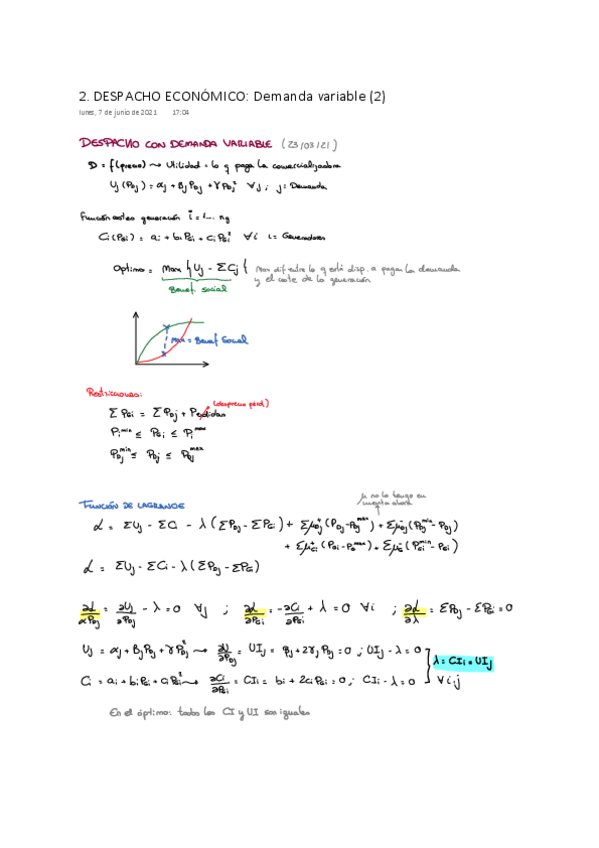 2. DESPACHO ECONÓMICO: Demanda variable (2)
lunes, 7 de junio de 2021 17:04
DESPACHO CON DEMANDA VARIABLE (23/03/21)
D = f(precio) ⤳ Utilidad = lo q paga la comercializadora
Uj (PDj) = αj + βj PDj + γ PDj² ∀j ; j = Demanda
Función costes generación i = 1... ng
Ci (PGi) = ai + bi PGi + ci PGi² ∀i i = Generadores
Optimo = Max { Uj - ΣCj { Max dif entre lo q está disp. a pagar la demanda
y el coste de la generación
Benef. social
Max = Benef Social
Restricciones:
(desprecio pérd)
Σ PGi = Σ PDj + Perdidas
Pi^min ≤ PGi ≤ Pi^max
PDj^min ≤ PDj ≤ PDj^max
μ no lo tengo en
cuenta ahora
FUNCIÓN DE LAGRANGE
L = ΣUj - ΣCi - λ (ΣPDj - ΣPGi) + Σμ⁺Dj (PDj - PDj^max) + Σμ⁻Dj (PDj^min - PDj)
+ Σμ⁺Gi (PGi - PG^max) + Σμ⁻Gi (PGi^min - PGi)
L = ΣUj - ΣCi - λ (ΣPDj - ΣPGi)
∂L/∂PDj = ∂Uj/∂PDj - λ = 0 ∀j ; ∂L/∂PGi = -∂Ci/∂PGi + λ = 0 ∀i ; ∂L/∂λ = ΣPDj - ΣPGi = 0
Uj = αj + βj PDj + γ PDj² ⤳ ∂U/∂PDj = UIj = βj + 2γj PDj = 0 ; UIj - λ = 0
λ = CIi = UIj
Ci = ai + bi PGi + ci PGi² ⤳ ∂Ci/∂PGi = CIi = bi + 2ci PGi = 0 ; CIi - λ = 0 ∀i,j
En el óptimo: todos los CI y UI son iguales